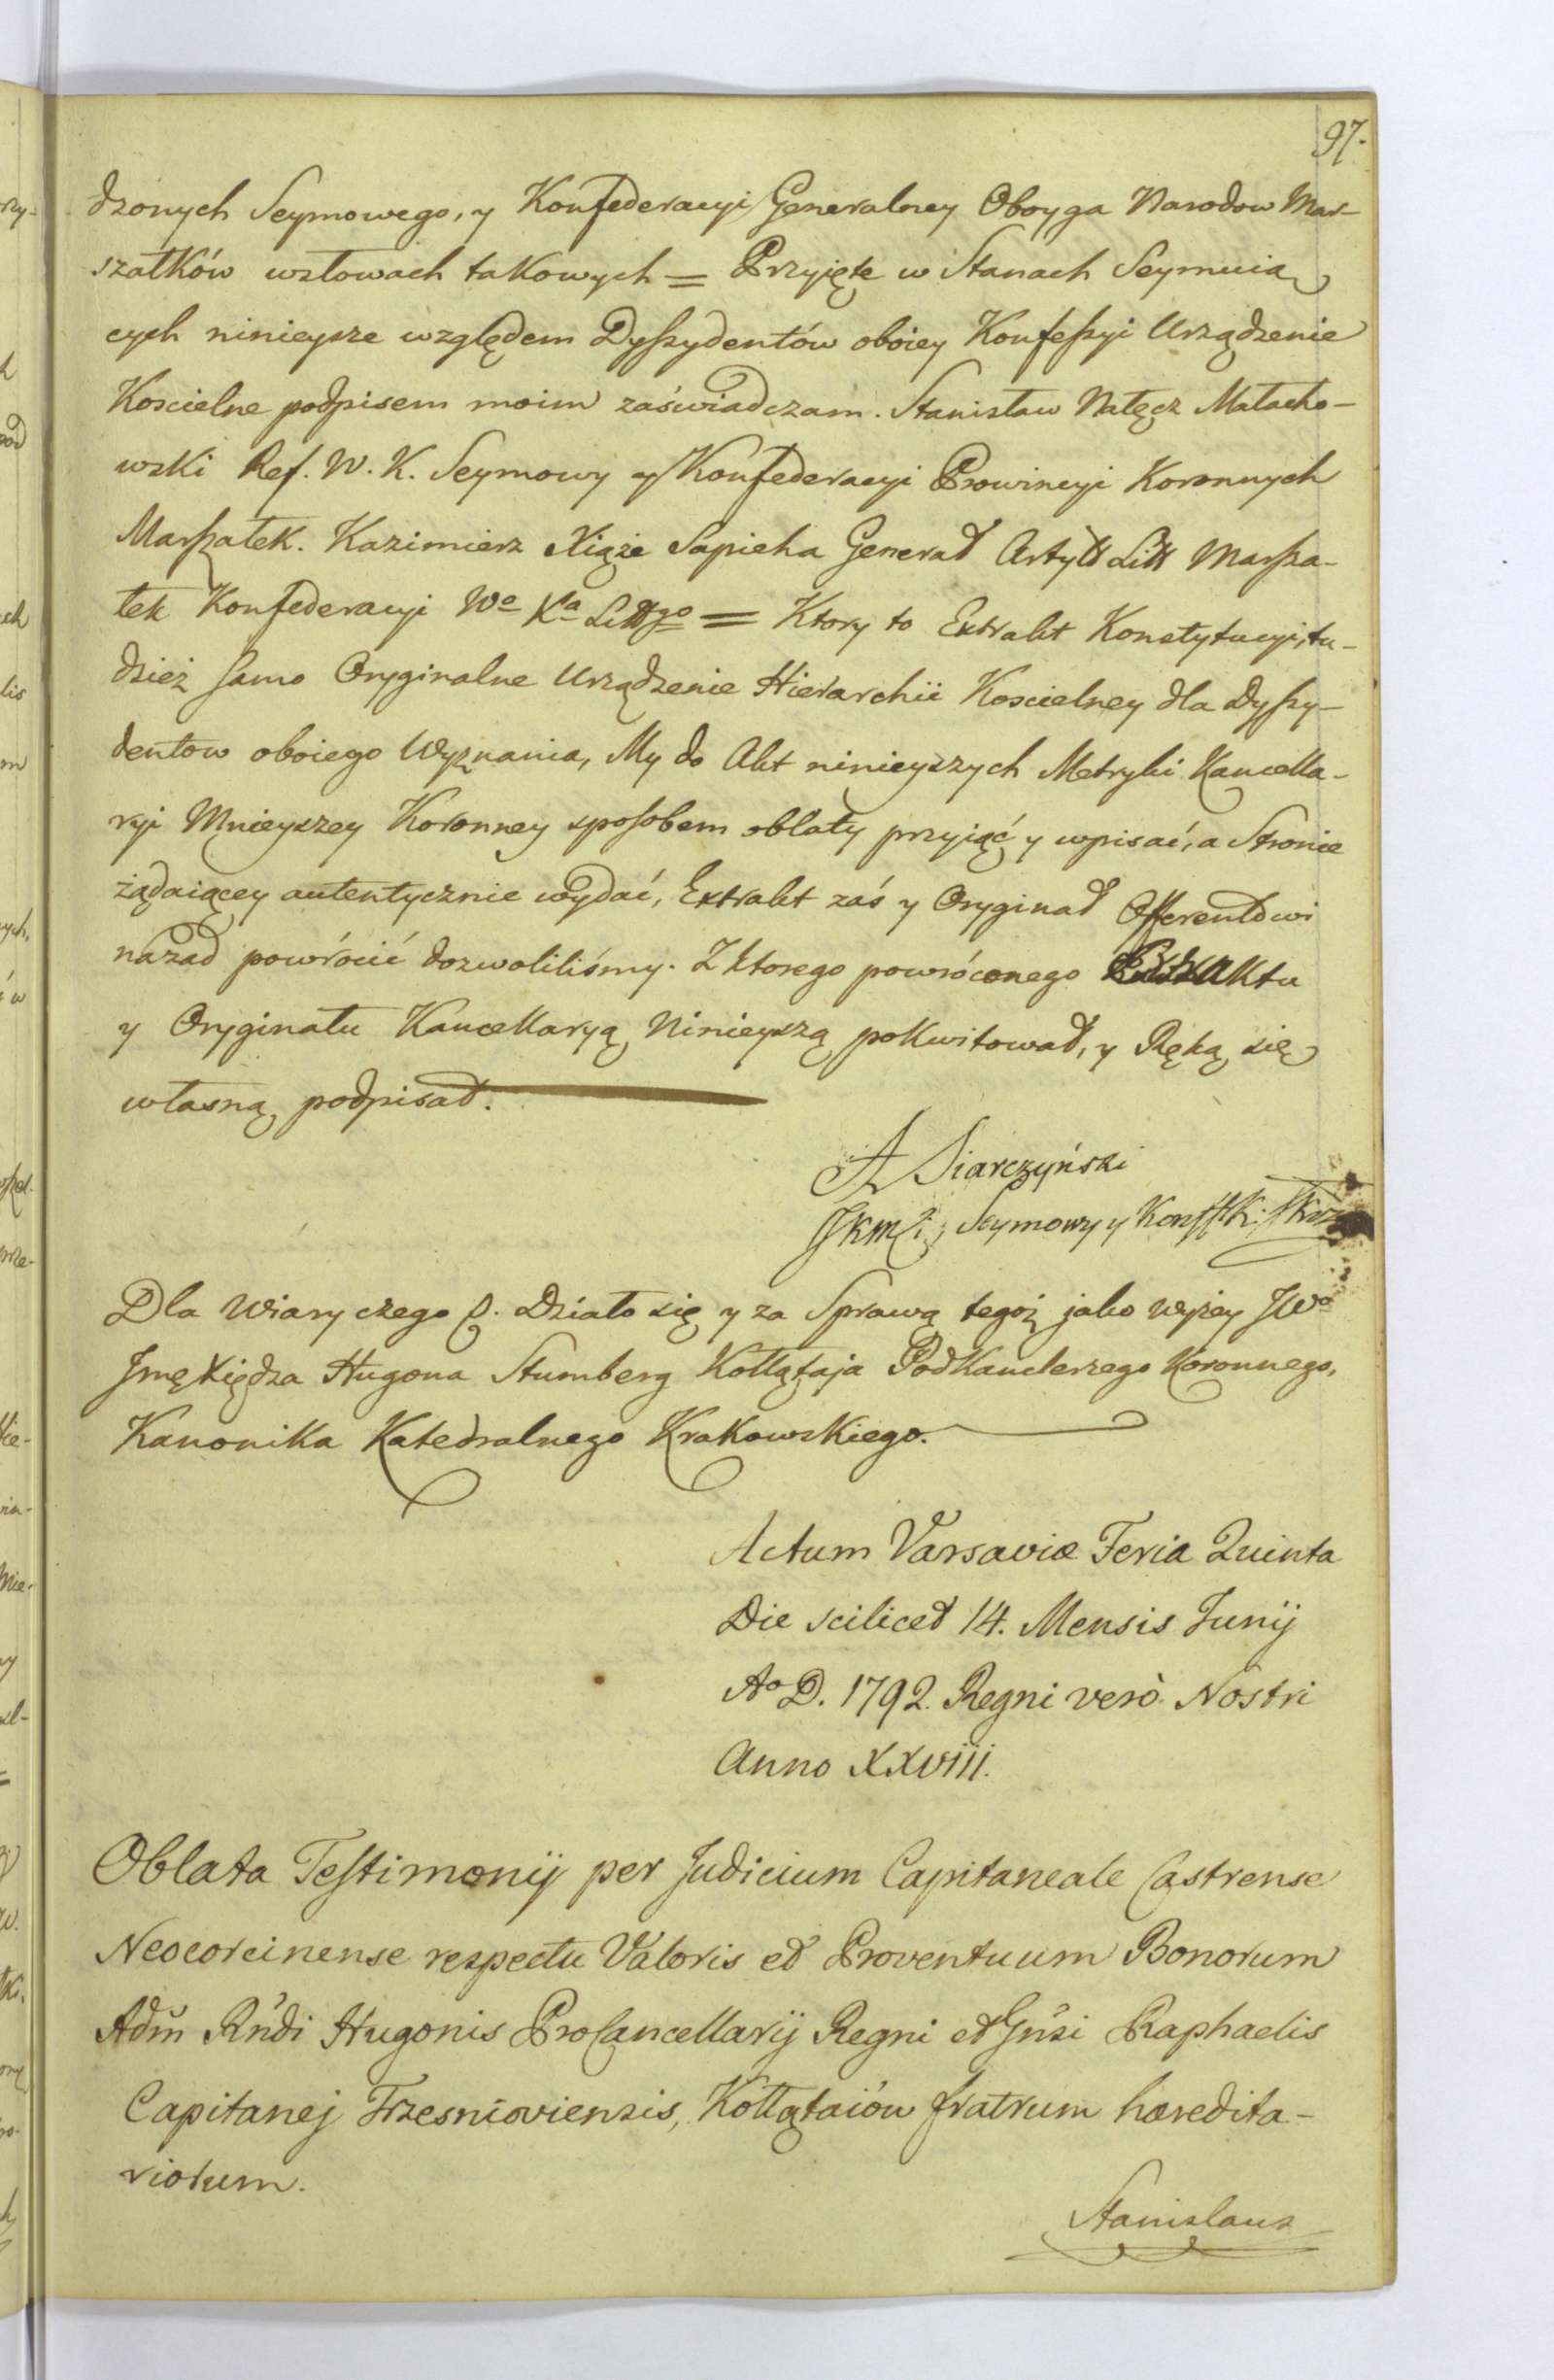 97.
dzonych Seymowego, y Konfederacyi Generalney Oboyga Narodow Mar-
szałków wsłowach takowych = Przyięte w Stanach Seymuią
cych ninieysze względem Dyssydentów oboiey Konfessyi Urządzenie
Koscielne podpisem moim zaświadczam. Stanisław Nałęcz Małacho-
wski Ref. W. K. Seymowy y Konfederacyi Prowincyi Koronnych
Marszałek. Kazimierz Xiąże Sapieha Generał Artyll Litt Marsza-
łek Konfederacyi Wo Xa Littgo = Ktory to Extrakt Konstytucyi, tu-
dzież samo Oryginalne Urządzenie Hierarchii Koscielney dla Dyssy-
dentow oboiego Wyznania, My do Akt ninieyszych Metryki Kancella-
ryi Mnieyszey Koronney sposobem oblaty przyiąć y wpisać, a Stronie
żądaiącey autentycznie wydać, Extrakt zaś y Oryginał Offerentowi
nazad powrócić dozwoliliśmy. Z ktorego powróconego Extraktu
y Oryginału Kancellaryą Ninieyszą pokwitował, y Ręką się
własną podpisał.
A Siarczyński
JKMci, Seymowy y Konff K:
Dla Wiary czego p. Działo się y za Sprawą tegoż jako wyżey JWo
Jmę Xiędza Hugona Stumberg Kołłątaja Podkanclerzego Koronnego,
Kanonika Katedralnego Krakowskiego.
Actum Varsaviæ Feria Quinta
Die scilicet 14. Mensis Junij
Ao D. 1792. Regni verò Nostri
Anno XXVIII.
Oblata Testimonij per Judicium Capitaneale Castrense
Neocorcinense respectu Valoris et Proventuum Bonorum
Adm̃ Rñdi Hugonis ProCancellarij Regni et Gñsi Raphaelis
Capitanej Trzesnioviensis, Kołłątaiów fratrum hæredita-
riorum.
Stanislaus